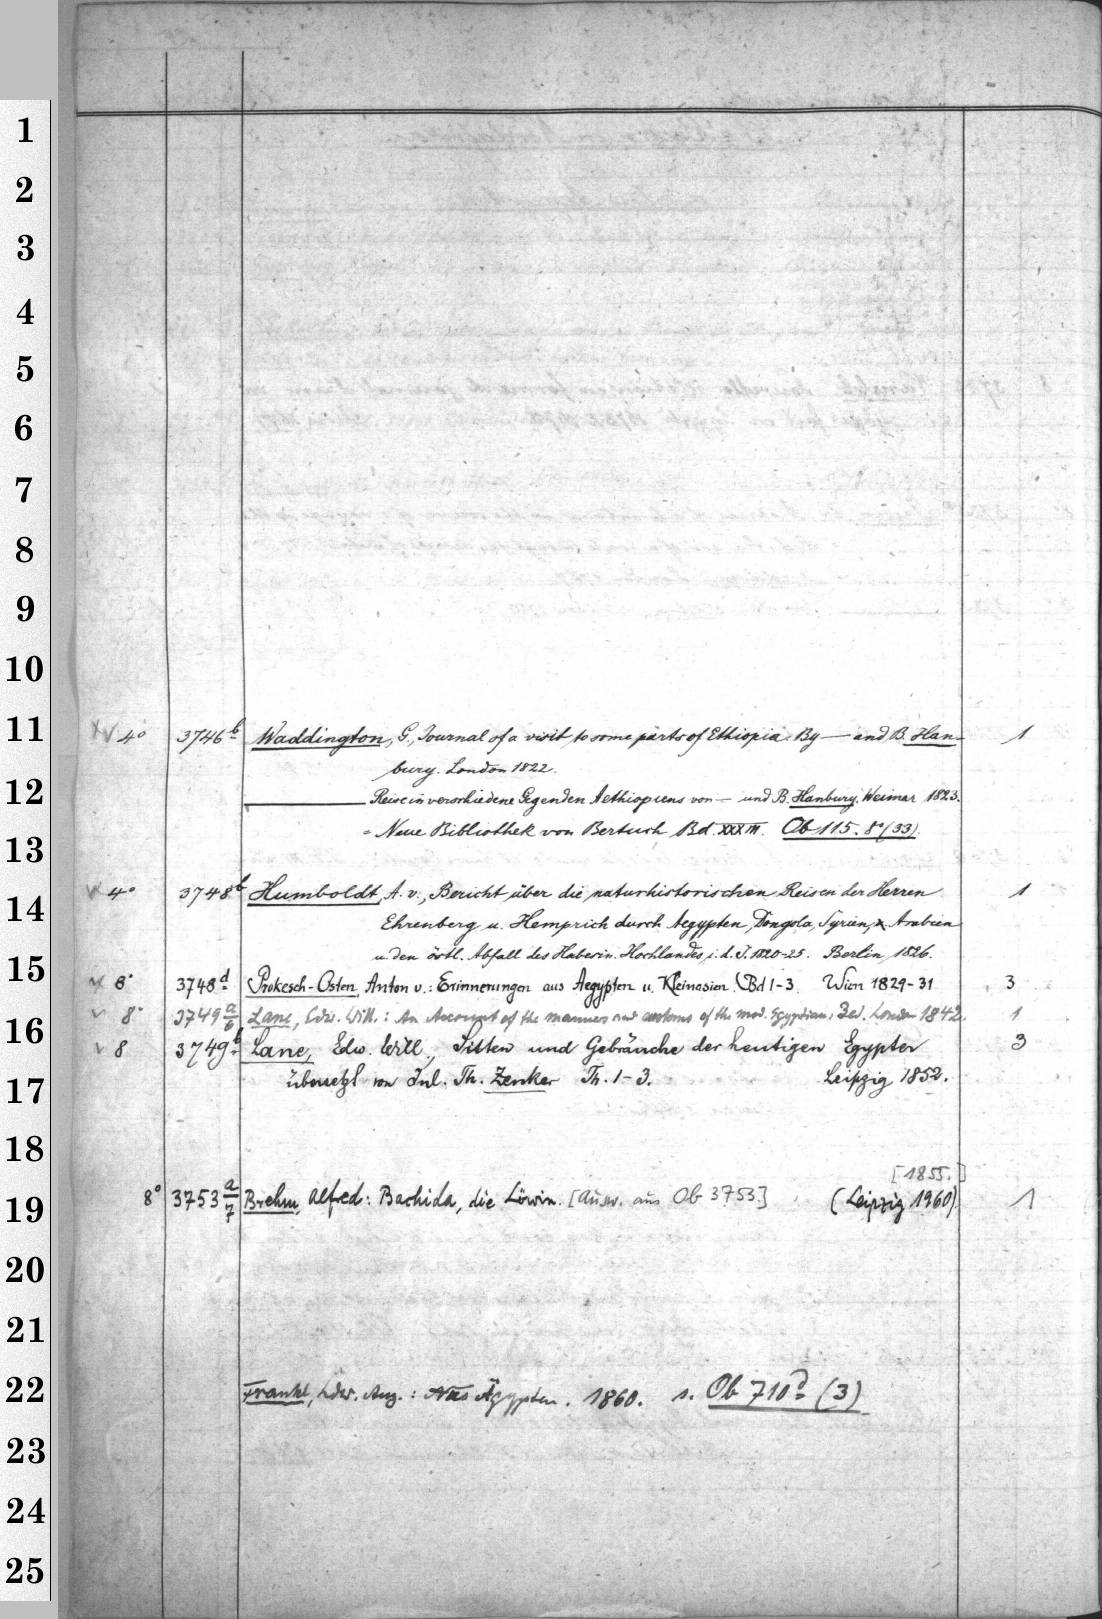 1
2
3
4
5
6
7
8
9
10
11
12
13
14
15
16
17
18
19
20
21
22
23
24
25
4° 3746b Waddington, G., Journal of a visit to some parts of Ethiopia. By — and B. Han- 1
bury. London 1822.
Reise in verschiedene Gegenden Aethiopiens von — und B. Hanbury. Weimar 1823.
= Neue Bibliothek von Bertuch, Bd. XXXIII. Ob 115. 8° (33).
4° 3748b Humboldt, A. v., Bericht über die naturhistorischen Reisen der Herren 1
Ehrenberg u. Hemprich durch Aegypten, Dongola, Syrien, Arabien
u. den östl. Abfall des Habessin. Hochlandes, i. d. J. 1820-25. Berlin 1826.
8° 3748d Prokesch-Osten, Anton v.: Erinnerungen aus Aegypten u. Kleinasien. Bd 1-3. Wien 1829-31 3
8° 3749a/6 Lane, Edw. Will.: An Account of the manners and customs of the mod. Egyptians, 3ed. London 1842. 1
8 3749b Lane, Edw. Will., Sitten und Gebräuche der heutigen Egypter 3
übersetzt von Jul. Th. Zenker Th. 1-3. Leipzig 1852.
[1855.]
8° 3753a/7 Brehm, Alfred: Bachida, die Löwin. [Ausw. aus Ob 3753] (Leipzig 1960). 1
Frankl, Ldw. Aug.: Aus Ägypten. 1860. s. Ob 710d (3)